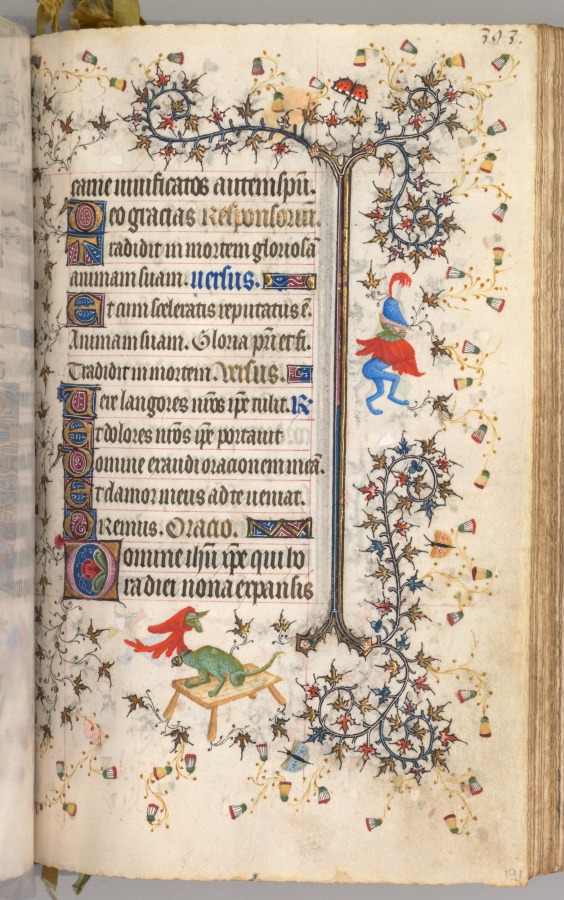 303.
carne vivificatos autem spū.
Deo gracias Responsoriū.
Tradidit in mortem gloriosā
animam suam. versus.
Et cum sceleratis reputatus ē.
Animam suam. Gloria pr̄i et fi.
Tradidit in mortem. Versus.
Vere langores nr̄os ip̄e tulit. R̄
Et dolores nr̄os ip̄e portavit
Domine exaudi oracionem meā.
Et clamor meus ad te veniat.
Oremus. Oracio.
Domine ihū xp̄e qui ho
ra diei nona expansis
191